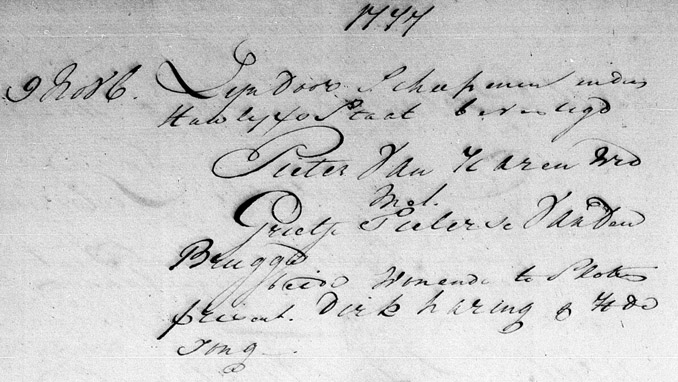 1777
9 Novb. Zyn Door Schepenen in den
Huwlyx Staat bevestigd
Pieter Van Haren Wed
Met
Grietje Pieterse Van Den
Brugge
beide Wonende te
present. Dirk haring & H de
Jong